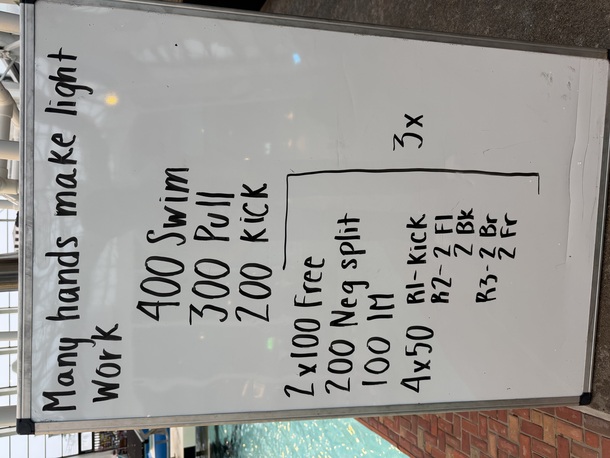 Many hands make light
work
400 Swim
300 Pull
200 Kick
2x100 Free
200 Neg split
100 IM
4x50 R1-Kick
R2-2 Fl
2 Bk
R3-2 Br
2 Fr
3x